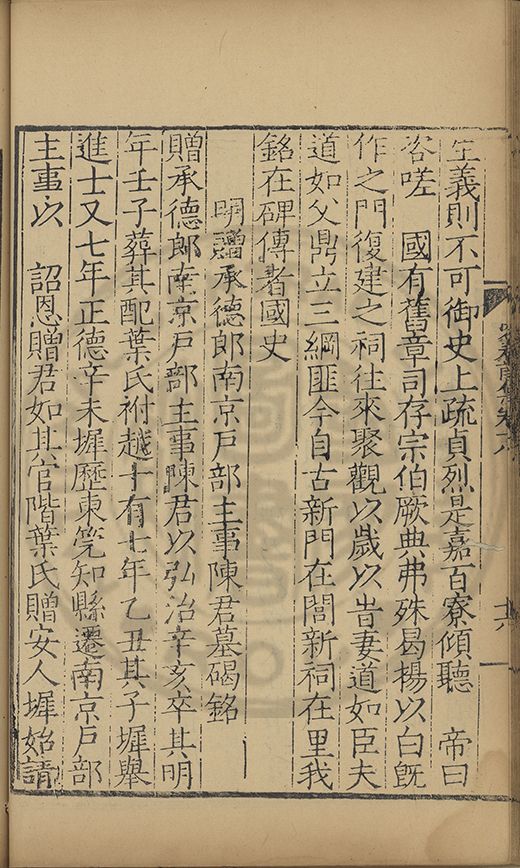 生義則不可御史上疏貞烈是嘉百寮傾聽　帝曰
咨嗟　國有舊章司存宗伯厥典弗殊曷楊以白旣
作之門復建之祠往來聚觀以歲以告妻道如臣夫
道如父鼎立三綱匪今自古新門在閭新祠在里我
銘在碑傳者國史
明贈承德郎南京戶部主事陳君墓碣銘
贈承德郎南京戶部主事陳君以弘治辛亥卒其明
年壬子葬其配葉氏祔越十有七年乙丑其子墀舉
進士又七年正德辛未墀歷東筦知縣遷南京戶部
主事以　詔恩贈君如其官階葉氏贈安人墀始請